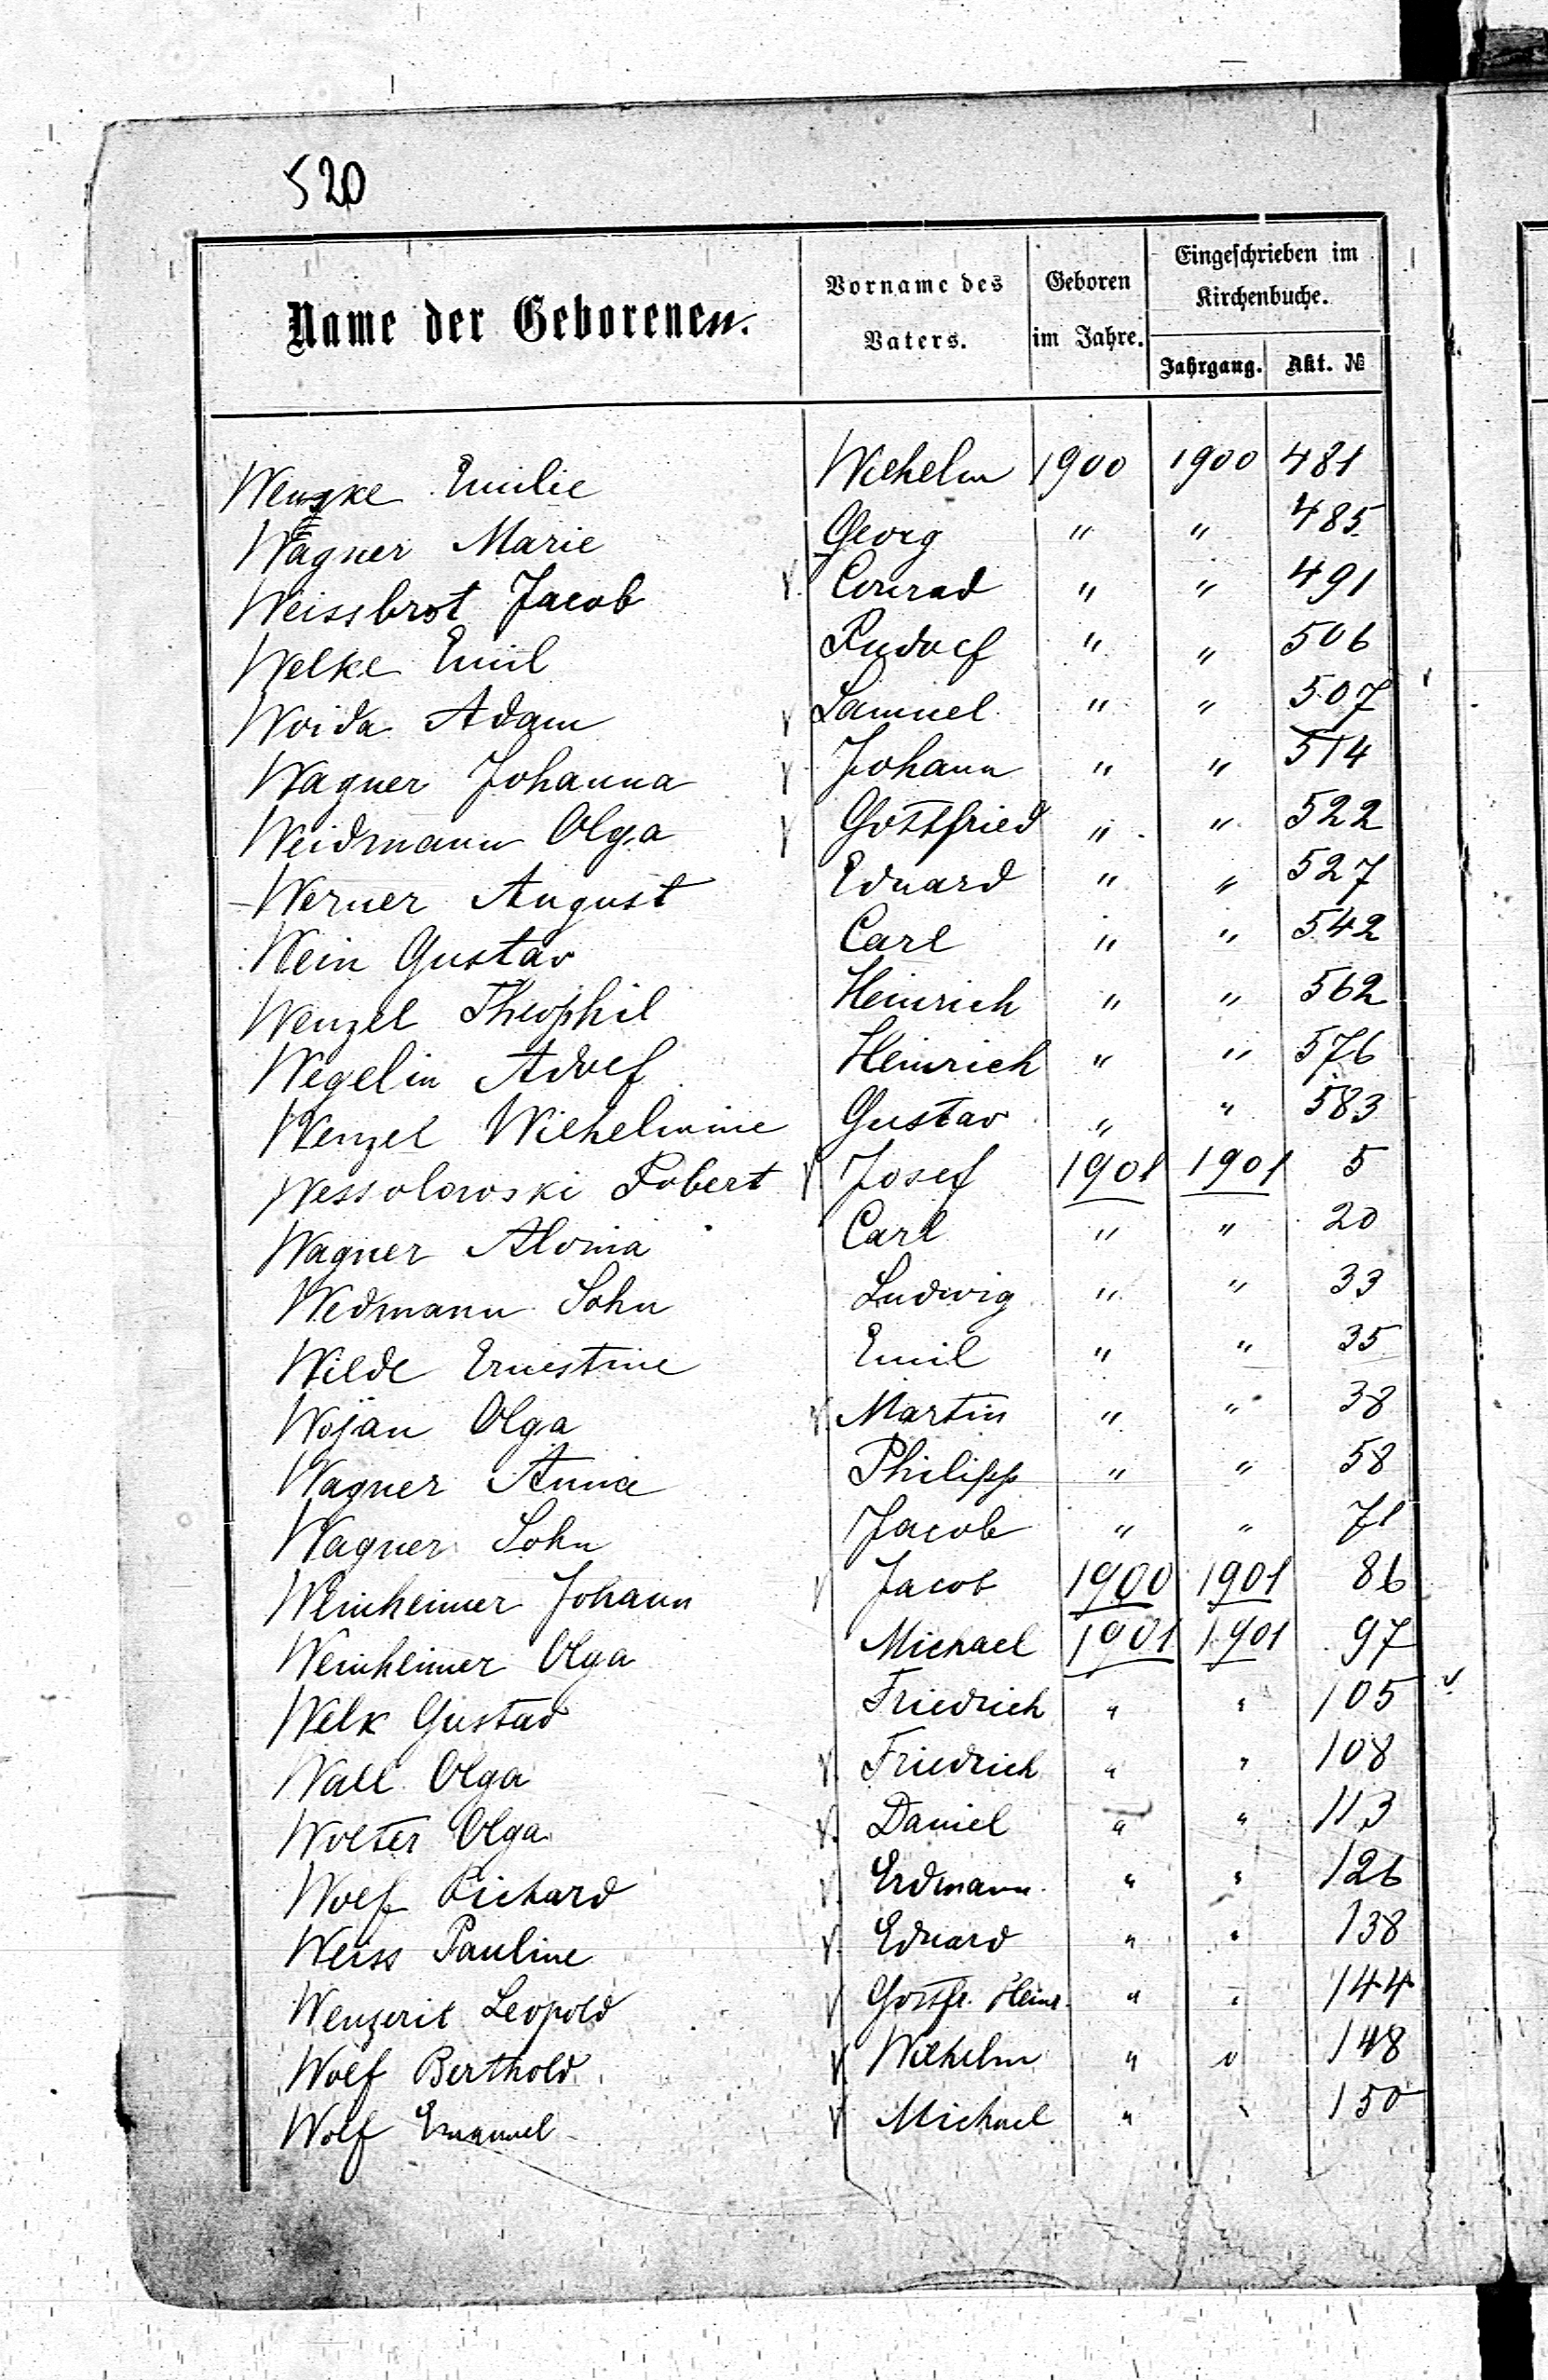 520
Name der Geborenen. Vorname des Vaters. Geboren im Jahre. Eingeschrieben im Kirchenbuche. Jahrgang. Akt. №
Wenzke Emilie Wilhelm 1900 1900 481
Wagner Marie Georg " " 485
Weissbrot Jacob Conrad " " 491
Welke Emil Rudolf " " 506
Woida Adam Samuel " " 507
Wagner Johanna Johann " " 514
Weidmann Olga Gottfried " " 522
Werner August Eduard " " 527
Wein Gustav Carl " " 542
Wenzel Theophil Heinrich " " 562
Wegelin Adolf Heinrich " " 576
Wenzel Wilhelmine Gustav " " 583
Wessolowski Robert Josef 1901 1901 5
Wagner Alvina Carl " " 20
Wedmann Sohn Ludwig " " 33
Wilde Ernestine Emil " " 35
Wojan Olga Martin " " 38
Wagner Anna Philipp " " 58
Wagner Sohn Jacob " " 71
Weinheimer Johann Jacob 1900 1901 86
Weinheimer Olga Michael 1901 1901 97
Welk Gustav Friedrich " " 105
Wall Olga Friedrich " " 108
Wolter Olga Daniel " " 113
Wolf Richard Erdmann " " 126
Weiss Pauline Eduard " " 138
Leopold Gottfr. Heinr. " " 144
Wolf Berthold Wilhelm " " 148
Wolf Emanuel Michael " " 150